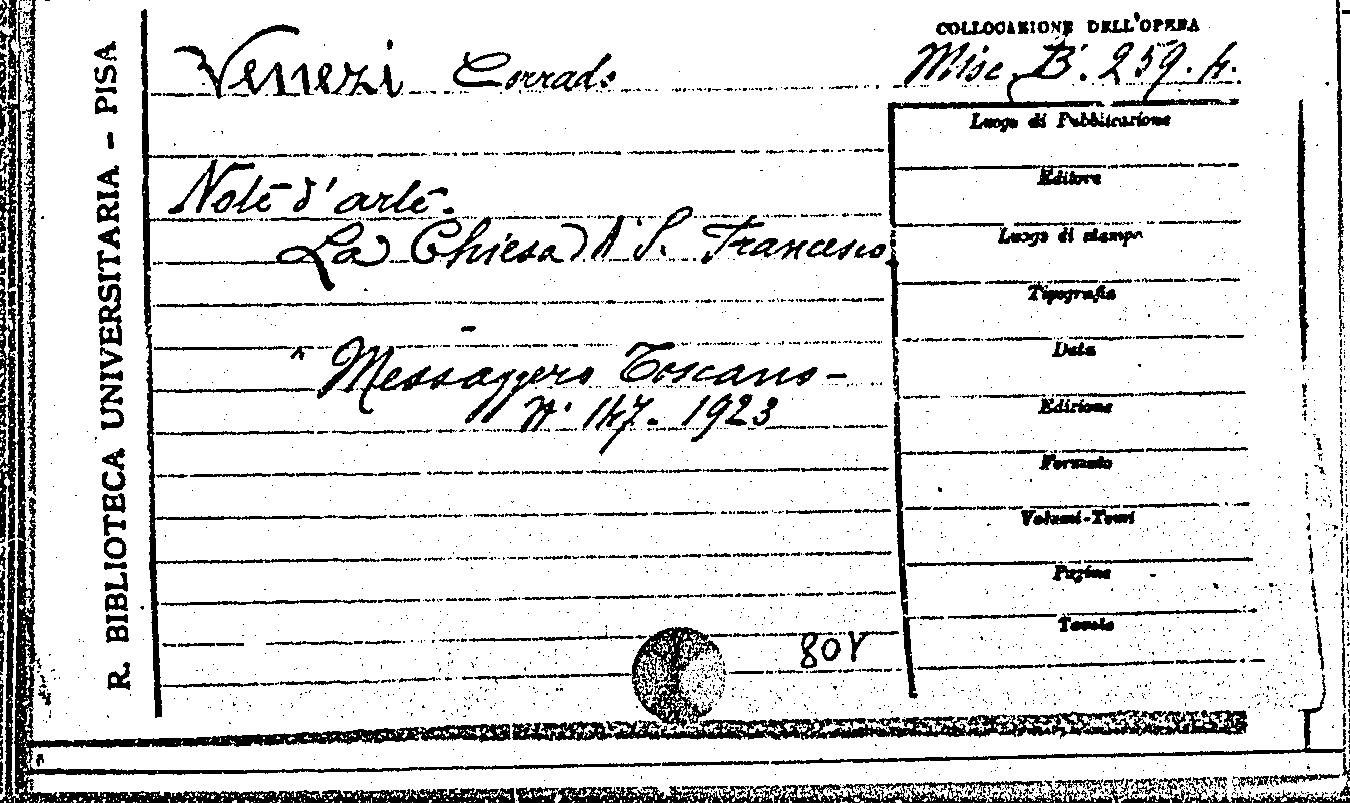 R. BIBLIOTECA UNIVERSITARIA - PISA
COLLOCAZIONE DELL'OPERA
Venezi Corrado
Misc. B. 259. 4.
Luogo di Pubblicazione
Editore
Luogo di stampa
Tipografia
Data
Edizione
Formato
Volumi-Tomi
Pagine
Tavole
Note d'arte.
La Chiesa di S. Francesco.
" Messaggero Toscano -
N. 147. 1923